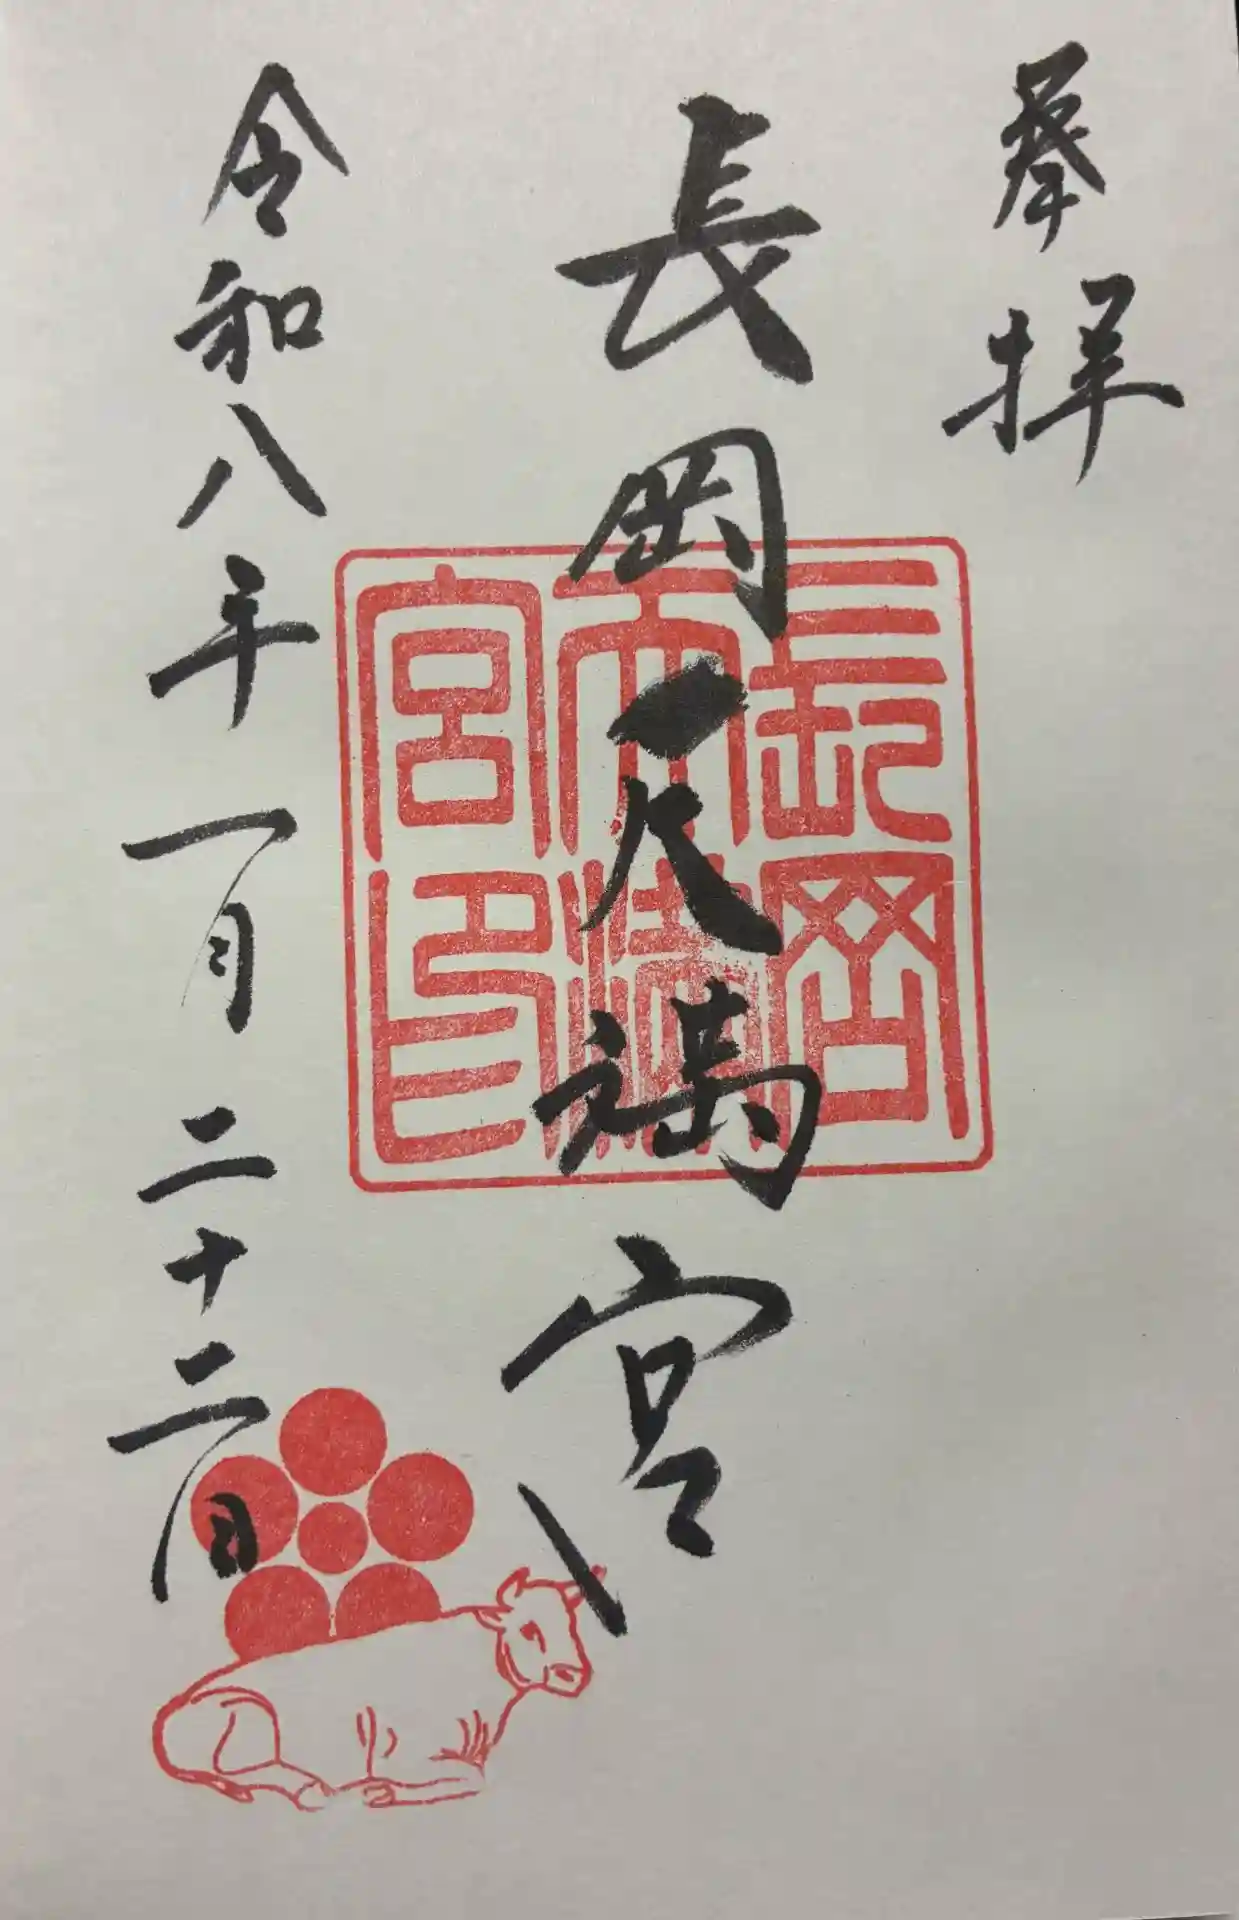 奉拝
長岡天満宮
長岡天満宮印
令和八年一月二十三日